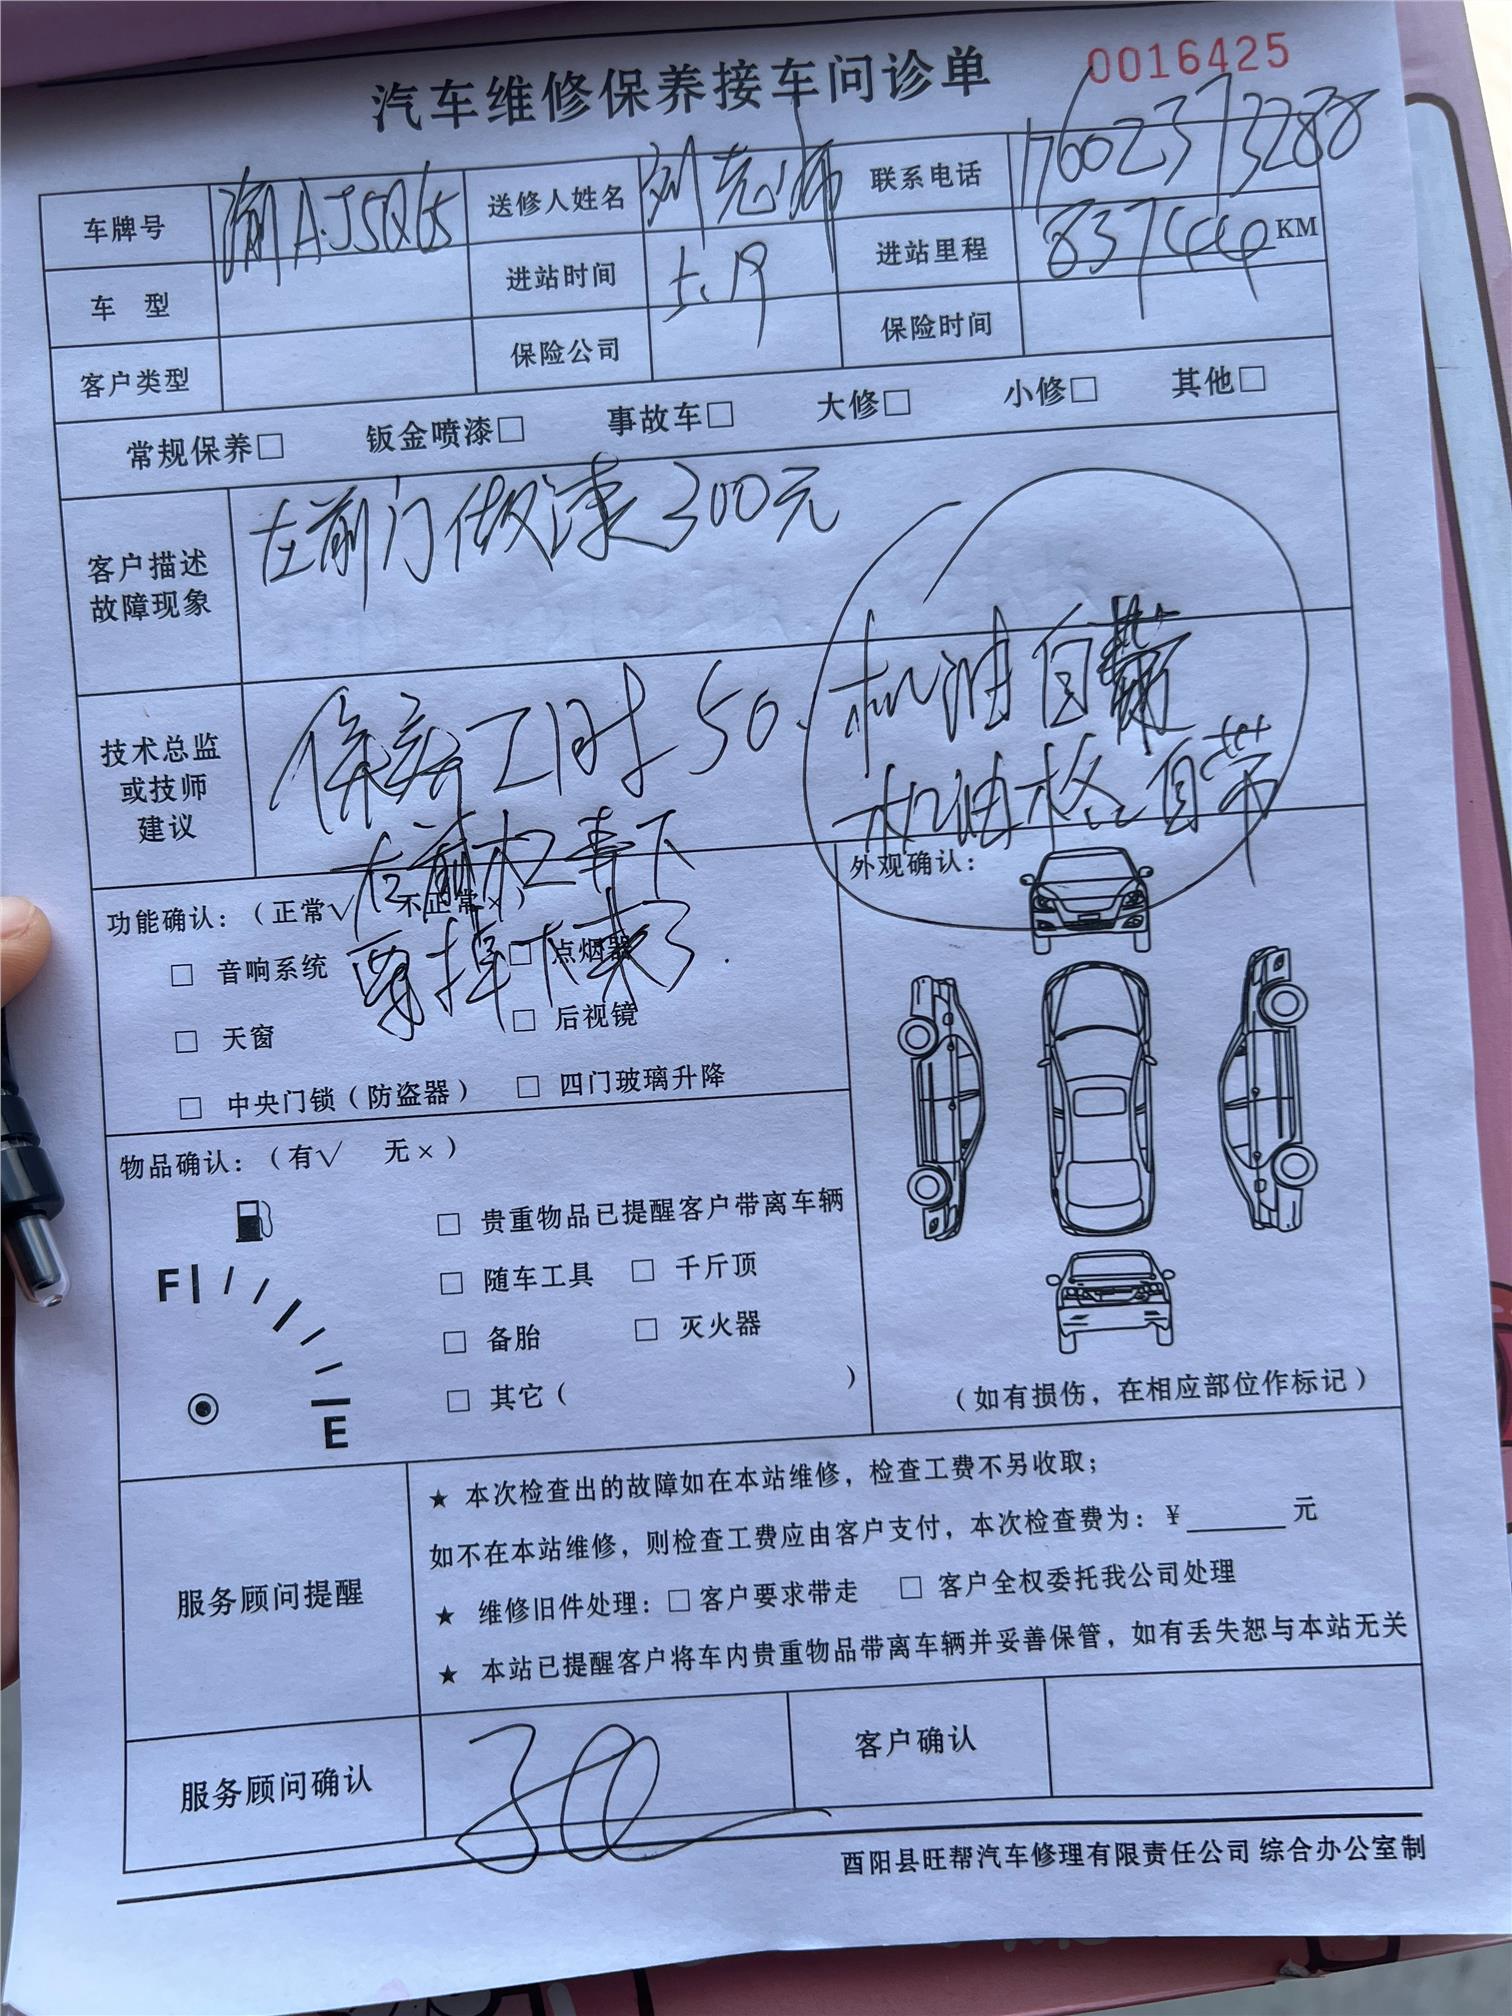 汽车维修保养接车问诊单
0016425
车牌号 渝AJ5Q65 送修人姓名 刘老师 联系电话 17602373288
车 型 进站时间 进站里程 83744 KM
客户类型 保险公司 保险时间
常规保养□ 钣金喷漆□ 事故车□ 大修□ 小修□ 其他□
客户描述
故障现象
左前门做漆300元
技术总监
或技师
建议
保养工时50.
机油自带
机油格自带
要掉下来了
功能确认:(正常√ 不正常×)
□ 音响系统 □ 点烟器
□ 天窗 □ 后视镜
□ 中央门锁(防盗器) □ 四门玻璃升降
外观确认:
(如有损伤,在相应部位作标记)
物品确认:(有√ 无×)
F
E
□ 贵重物品已提醒客户带离车辆
□ 随车工具 □ 千斤顶
□ 备胎 □ 灭火器
□ 其它( )
服务顾问提醒
★ 本次检查出的故障如在本站维修,检查工费不另收取;
如不在本站维修,则检查工费应由客户支付,本次检查费为:¥______元
★ 维修旧件处理:□客户要求带走 □ 客户全权委托我公司处理
★ 本站已提醒客户将车内贵重物品带离车辆并妥善保管,如有丢失恕与本站无关
服务顾问确认 客户确认
酉阳县旺帮汽车修理有限责任公司 综合办公室制